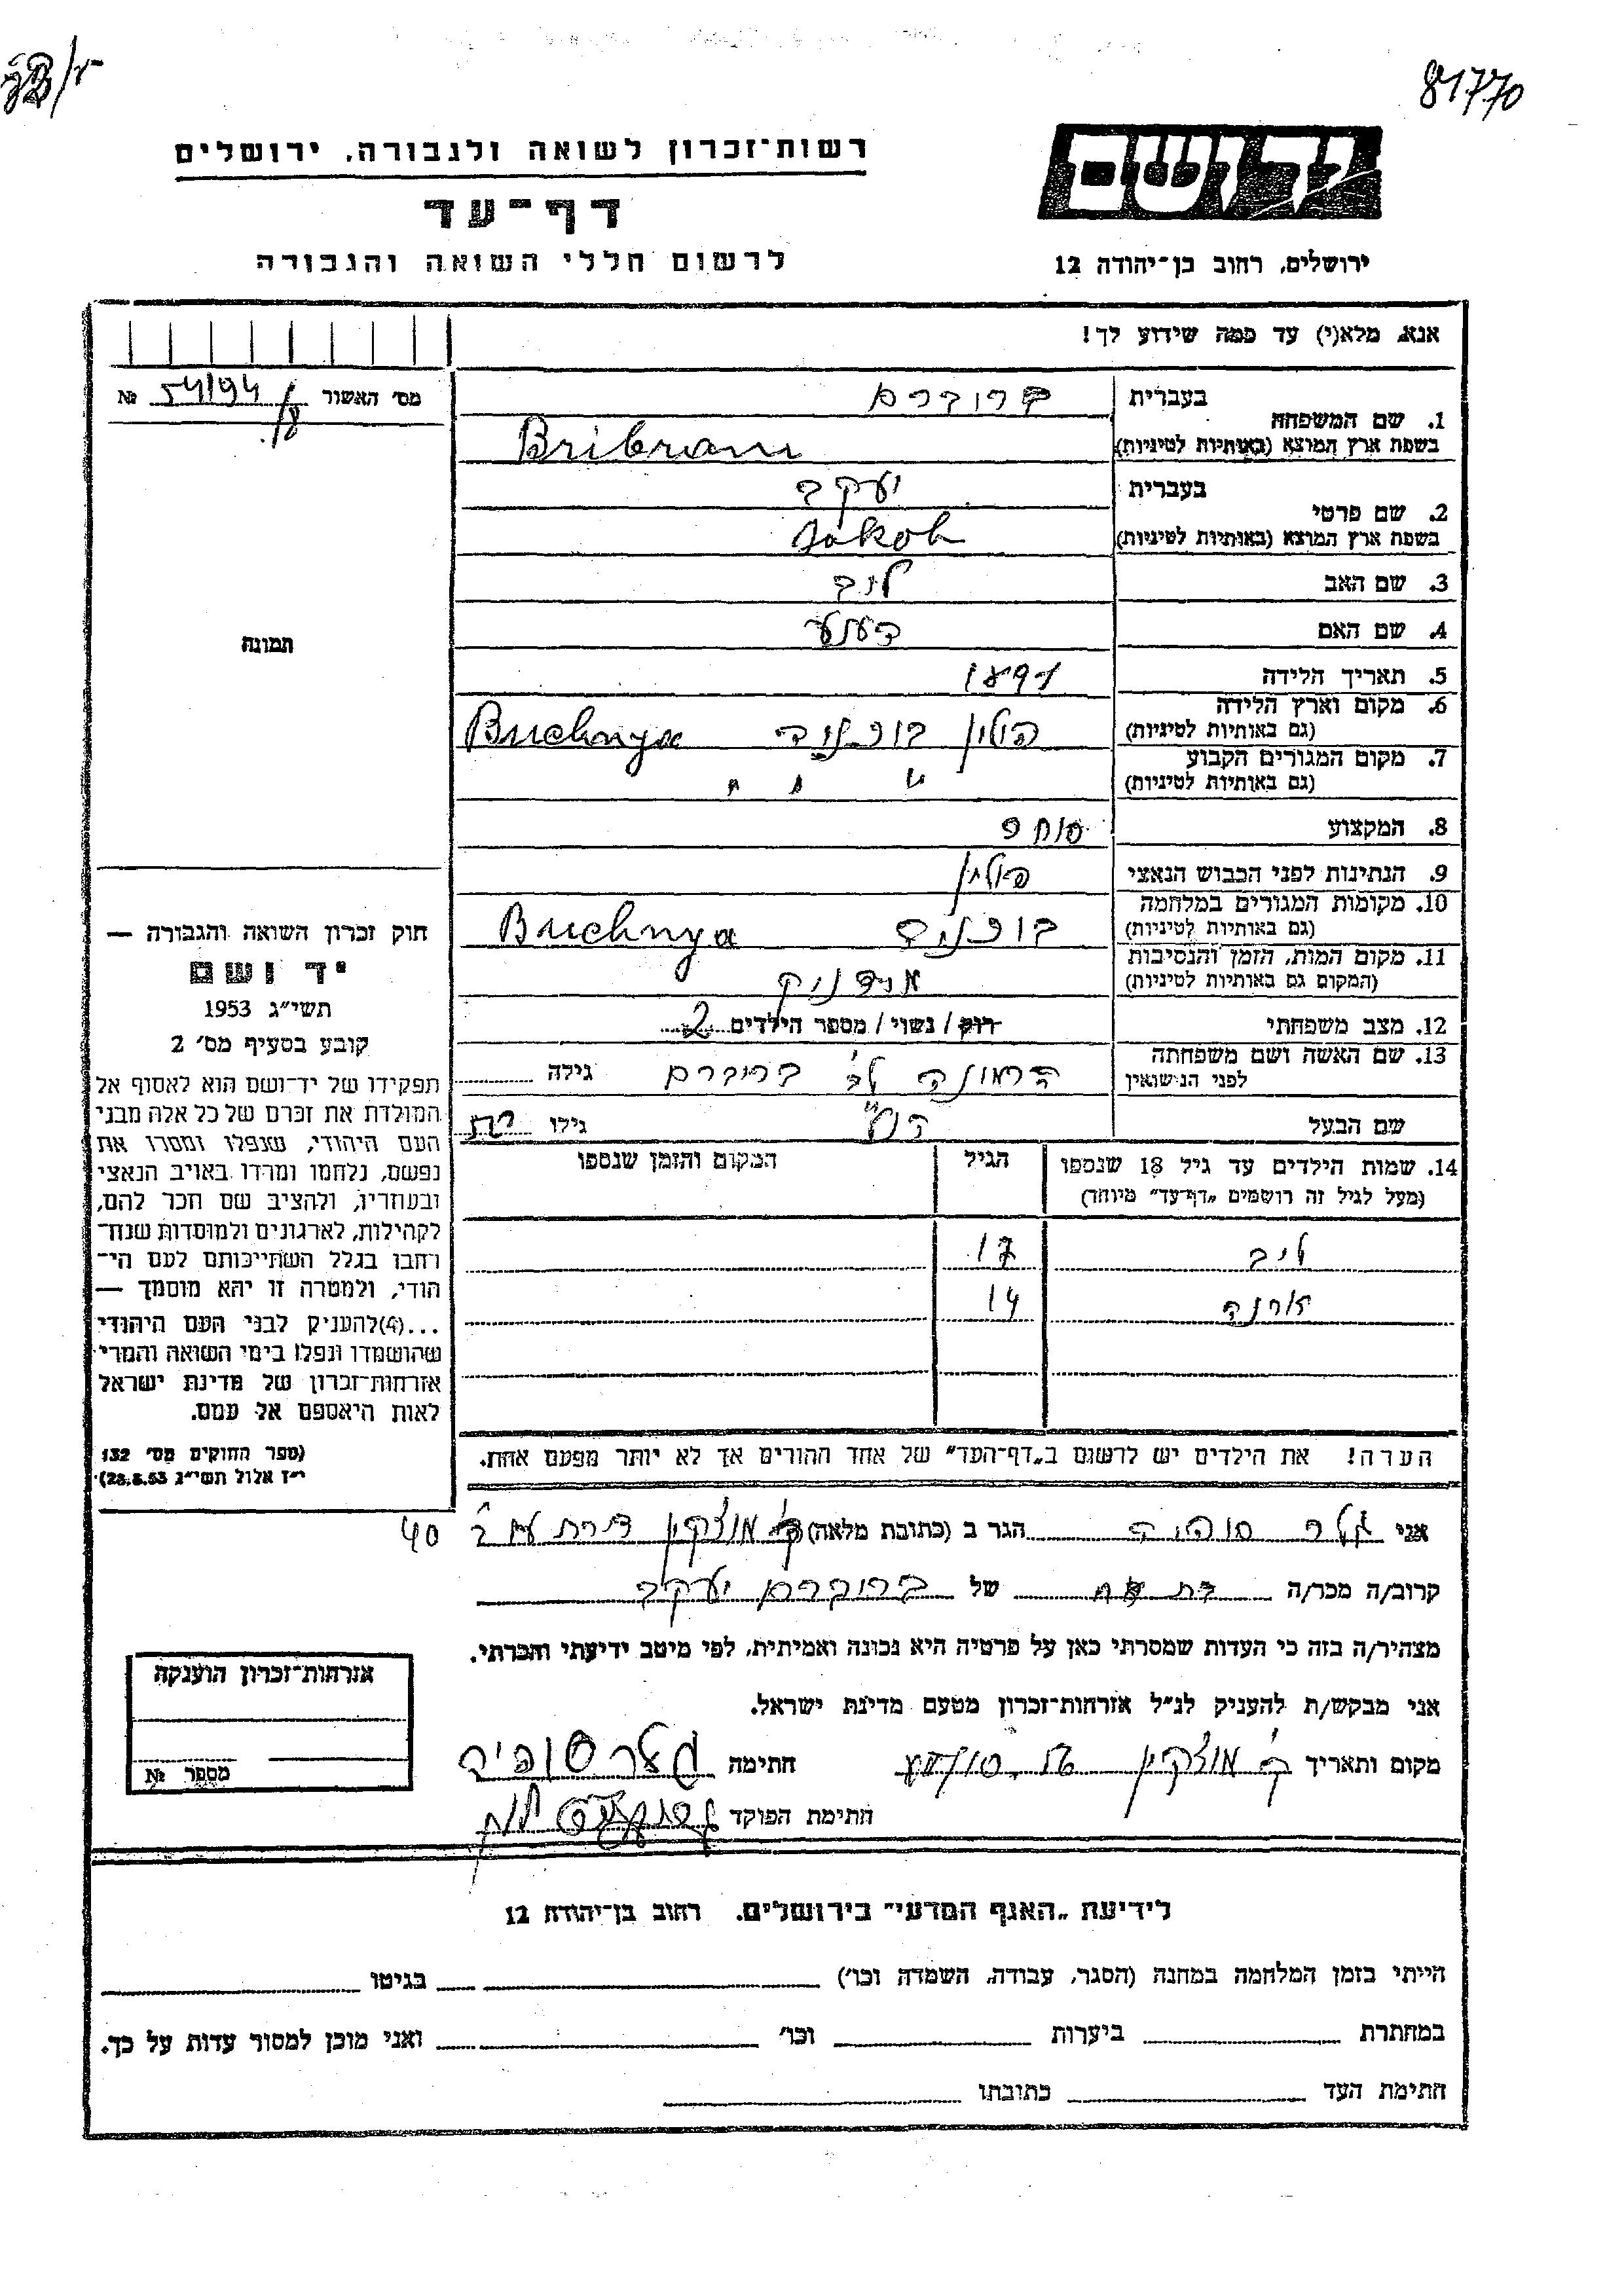 81770
רשות־זכרון לשואה ולגבורה, ירושלים
דף־עד
לרשום חללי השואה והגבורה
יד ושם
ירושלים, רחוב בן־יהודה 12
אנא, מלא(י) עד כמה שידוע לך!
מס׳ האשור 54194 №
1. שם המשפחה
בעברית ברוברם
בשפת ארץ המוצא (באותיות לטיניות) Bribram
2. שם פרטי
בעברית יעקב
בשפת ארץ המוצא (באותיות לטיניות) Jakob
3. שם האב לוב
4. שם האם
5. תאריך הלידה 1897
6. מקום וארץ הלידה
(גם באותיות לטיניות) פולין בוכניה Buchnya
7. מקום המגורים הקבוע
(גם באותיות לטיניות) " " "
8. המקצוע סוחר
9. הנתינות לפני הכבוש הנאצי פולין
10. מקומות המגורים במלחמה
(גם באותיות לטיניות) בוכניה Buchnya
11. מקום המות, הזמן והנסיבות
(המקום גם באותיות לטיניות)
12. מצב משפחתי רוק / נשוי / מספר הילדים 2
13. שם האשה ושם משפחתה
לפני הנישואין לב׳ ברוברם גילה
שם הבעל גילו
14. שמות הילדים עד גיל 18 שנספו
(מעל לגיל זה רושמים „דף־עד״ מיוחד)
הגיל
המקום והזמן שנספו
ליב 17
14
הערה! את הילדים יש לרשום ב„דף־העד״ של אחד ההורים אך לא יותר מפעם אחת.
תמונה
חוק זכרון השואה והגבורה —
יד ושם
תשי״ג 1953
קובע בסעיף מס׳ 2
תפקידו של יד־ושם הוא לאסוף אל
המולדת את זכרם של כל אלה מבני
העם היהודי, שנפלו ומסרו את
נפשם, נלחמו ומרדו באויב הנאצי
ובעוזריו, ולהציב שם וזכר להם,
לקהילות, לארגונים ולמוסדות שנח־
רבו בגלל השתייכותם לעם הי־
הודי, ולמטרה זו יהא מוסמך —
...(4)להעניק לבני העם היהודי
שהושמדו ונפלו בימי השואה והמרי
אזרחות־זכרון של מדינת ישראל
לאות היאספם אל עמם.
(ספר החוקים מס׳ 132
י״ז אלול תשי״ג 28.8.53)
אני סופיה הגר ב (כתובת מלאה) ק׳ מוצקין 40
קרוב/ה מכר/ה של ברוברם יעקב
מצהיר/ה בזה כי העדות שמסרתי כאן על פרטיה היא נכונה ואמיתית, לפי מיטב ידיעתי והכרתי.
אני מבקש/ת להעניק לנ״ל אזרחות־זכרון מטעם מדינת ישראל.
מקום ותאריך ק׳ מוצקין חתימה סופיה
חתימת הפוקד
אזרחות־זכרון הוענקה
מספר №
לידיעת „האגף המדעי״ בירושלים. רחוב בן־יהודה 12
הייתי בזמן המלחמה במחנה (הסגר, עבודה, השמדה וכו׳) בגיטו
במחתרת ביערות וכו׳ ואני מוכן למסור עדות על כך.
חתימת העד כתובתו